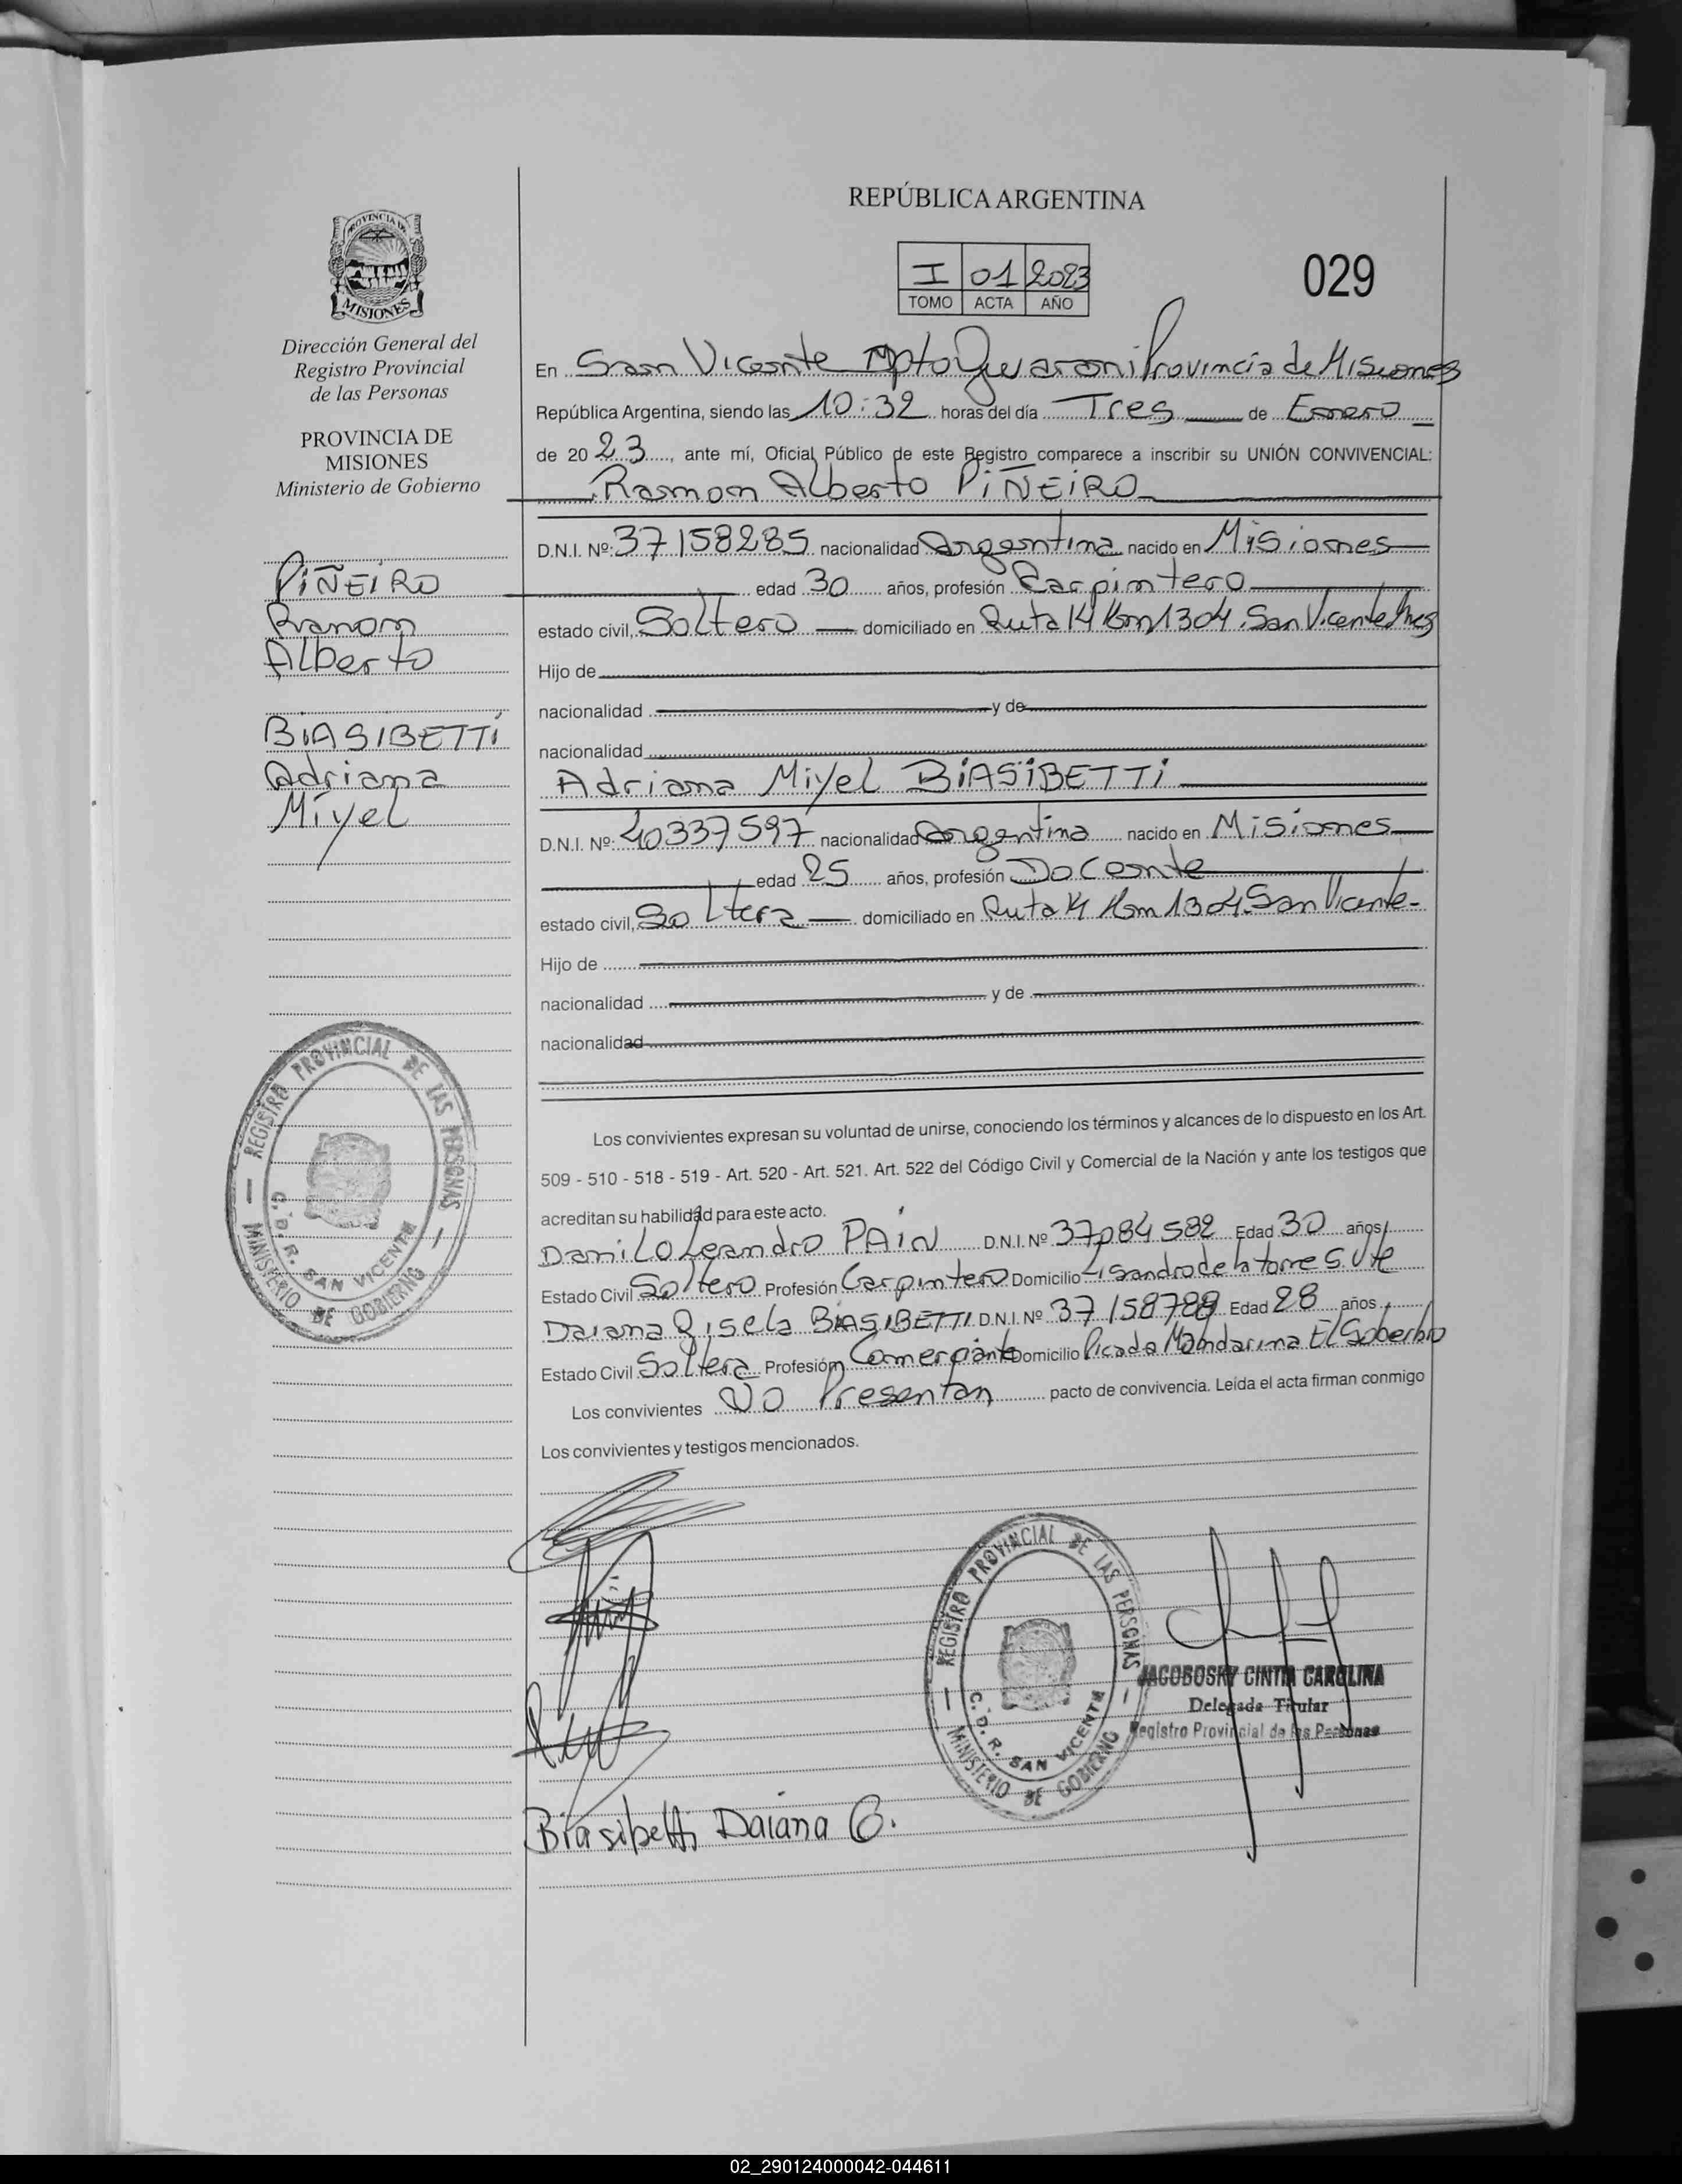 REPÚBLICA ARGENTINA
I 01 2023
TOMO ACTA AÑO
029
PROVINCIA DE
MISIONES
Dirección General del
Registro Provincial
de las Personas
PROVINCIA DE
MISIONES
Ministerio de Gobierno
PIÑEIRO
Ramon
Alberto
BIASIBETTI
Adriana
Miyel
REGISTRO PROVINCIAL DE LAS PERSONAS
C. D. R. SAN VICENTE
MINISTERIO DE GOBIERNO
En San Vicente Dpto Guarani Provincia de Misiones
República Argentina, siendo las 10:32 horas del día Tres de Enero
de 2023, ante mí, Oficial Público de este Registro comparece a inscribir su UNIÓN CONVIVENCIAL:
Ramon Alberto PIÑEIRO
D.N.I. Nº: 37158285 nacionalidad Argentina nacido en Misiones
edad 30 años, profesión Carpintero
estado civil, Soltero domiciliado en Ruta 14 Km 1304 San Vicente Mnes
Hijo de
nacionalidad y de
nacionalidad
Adriana Miyel BIASIBETTI
D.N.I. Nº: 40337597 nacionalidad Argentina nacido en Misiones
edad 25 años, profesión Docente
estado civil, Soltera domiciliado en Ruta 14 Km 1304 San Vicente-
Hijo de
nacionalidad y de
nacionalidad
Los convivientes expresan su voluntad de unirse, conociendo los términos y alcances de lo dispuesto en los Art.
509 - 510 - 518 - 519 - Art. 520 - Art. 521. Art. 522 del Código Civil y Comercial de la Nación y ante los testigos que
acreditan su habilidad para este acto.
Danilo Leandro PAIN D.N.I. Nº 37084582 Edad 30 años,
Estado Civil Soltero Profesión Carpintero Domicilio Lisandro de la torre S. Vte
Daiana Gisela BIASIBETTI D.N.I. Nº 37158788 Edad 28 años,
Estado Civil Soltera Profesión Comerciante Domicilio Picada Mandarina El Soberbio
Los convivientes No Presentan pacto de convivencia. Leída el acta firman conmigo
Los convivientes y testigos mencionados.
REGISTRO PROVINCIAL DE LAS PERSONAS
C. D. R. SAN VICENTE
MINISTERIO DE GOBIERNO
JACOBOSKY CINTIA CAROLINA
Delegada Titular
Registro Provincial de las Personas
Biasibetti Daiana G.
02_290124000042-044611